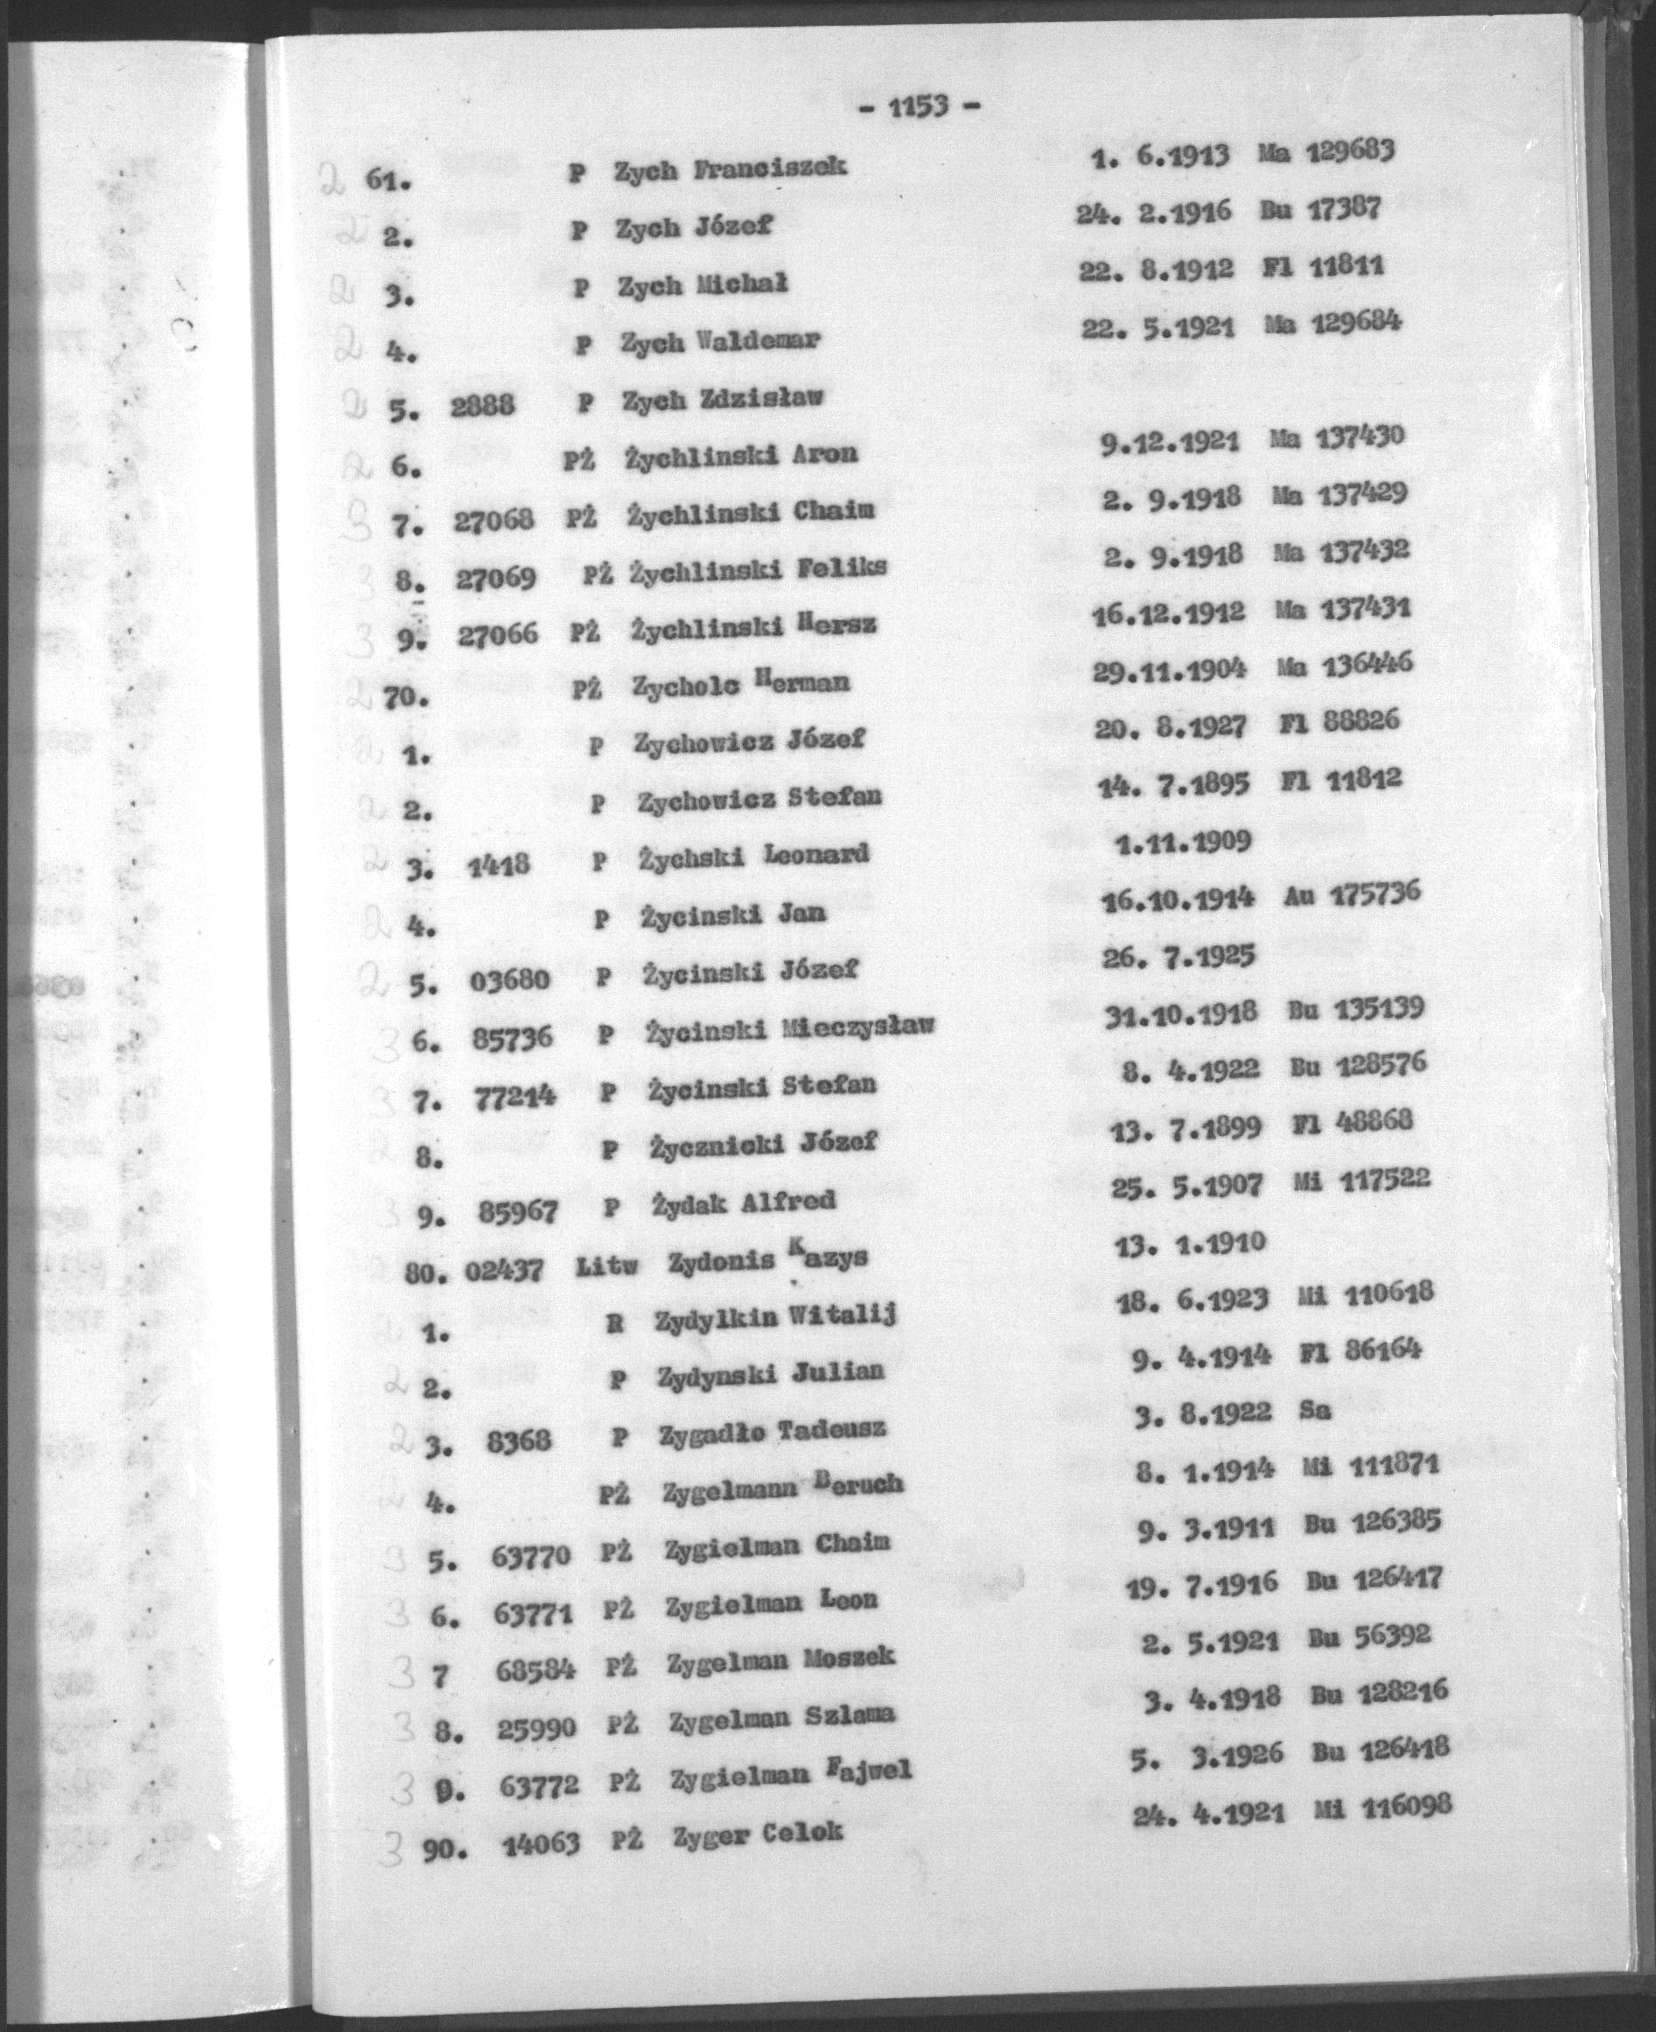 - 1153 -
2 61. P Zych Franciszek 1. 6.1913 Ma 129683
2 2. P Zych Józef 24. 2.1916 Bu 17387
2 3. P Zych Michał 22. 8.1912 Fl 11811
2 4. P Zych Waldemar 22. 5.1921 Ma 129684
2 5. 2888 P Zych Zdzisław
2 6. PŻ Żychlinski Aron 9.12.1921 Ma 137430
3 7. 27068 PŻ Żychlinski Chaim 2. 9.1918 Ma 137429
3 8. 27069 PŻ Żychlinski Feliks 2. 9.1918 Ma 137432
3 9. 27066 PŻ Żychlinski Hersz 16.12.1912 Ma 137431
2 70. PŻ Zycholc Herman 29.11.1904 Ma 136446
2 1. P Zychowicz Józef 20. 8.1927 Fl 88826
2 2. P Zychowicz Stefan 14. 7.1895 Fl 11812
2 3. 1418 P Żychski Leonard 1.11.1909
2 4. P Życinski Jan 16.10.1914 Au 175736
2 5. 03680 P Życinski Józef 26. 7.1925
3 6. 85736 P Życinski Mieczysław 31.10.1918 Bu 135139
3 7. 77214 P Życinski Stefan 8. 4.1922 Bu 128576
2 8. P Życznicki Józef 13. 7.1899 Fl 48868
3 9. 85967 P Żydak Alfred 25. 5.1907 Mi 117522
80. 02437 Litw Zydonis Kazys 13. 1.1910
2 1. R Zydylkin Witalij 18. 6.1923 Mi 110618
2 2. P Zydynski Julian 9. 4.1914 Fl 86164
2 3. 8368 P Zygadło Tadeusz 3. 8.1922 Sa
2 4. PŻ Zygelmann Beruch 8. 1.1914 Mi 111871
3 5. 63770 PŻ Zygielman Chaim 9. 3.1911 Bu 126385
3 6. 63771 PŻ Zygielman Leon 19. 7.1916 Bu 126417
3 7 68584 PŻ Zygelman Moszek 2. 5.1921 Bu 56392
3 8. 25990 PŻ Zygelman Szlama 3. 4.1918 Bu 128216
3 9. 63772 PŻ Zygielman Fajwel 5. 3.1926 Bu 126418
3 90. 14063 PŻ Zyger Celok 24. 4.1921 Mi 116098